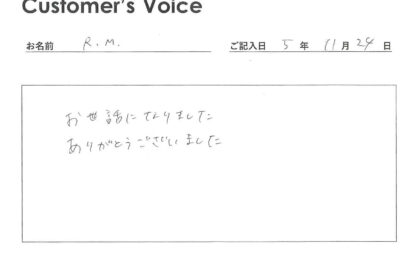 Customer's Voice
お名前 R.M. ご記入日 5 年 11 月 24 日
お世話になりました
ありがとうございました